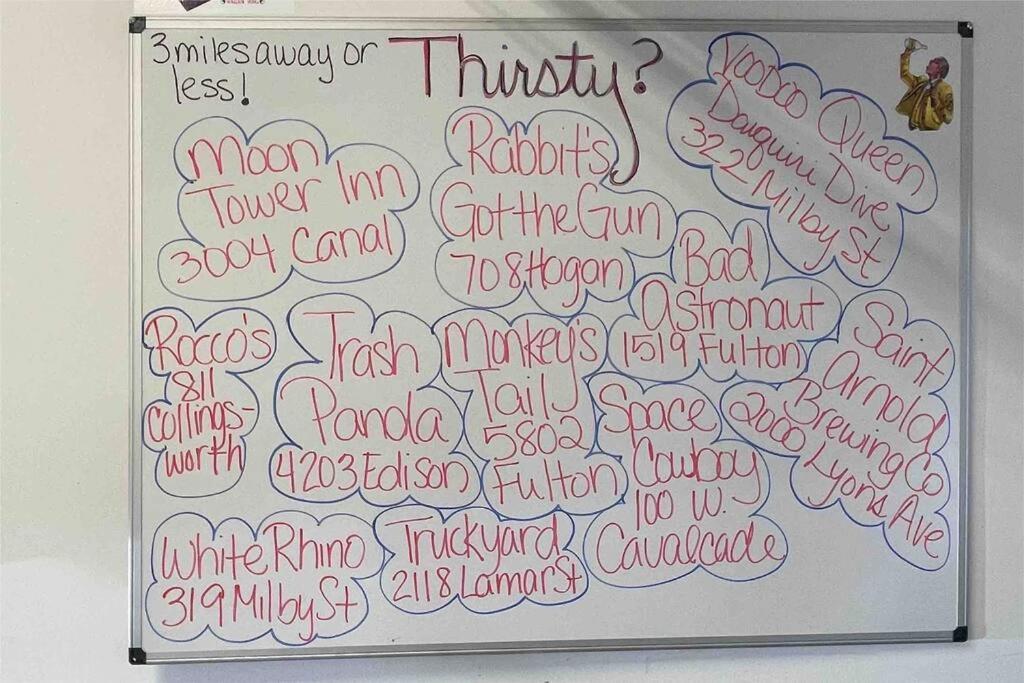 3 miles away or
less!
Thirsty?
Moon
Tower Inn
3004 Canal
Rabbit's
Got the Gun
708 Hogan
VooDoo Queen
Daiquiri Dive
3220 Milby St
Bad
Astronaut
1519 Fulton
Saint
Arnold
Brewing Co
2000 Lyons Ave
Rocco's
811
Collings-
worth
Trash
Panda
4203 Edison
Monkey's
Tail
5802
Fulton
Space
Cowboy
100 W.
Cavalcade
White Rhino
319 Milby St
Truckyard
2118 Lamar St